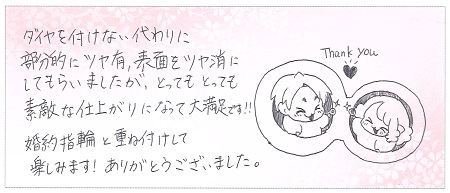 ダイヤを付けない代わりに
部分的にツヤ有, 表面をツヤ消に
してもらいましたが、とってもとっても
素敵な仕上がりになって大満足です!!
婚約指輪と重ね付けして
楽しみます! ありがとうございました。
Thank you